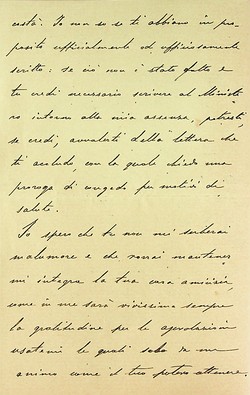 costà. Io non so se ti abbiano in pro-
posito ufficialmente od ufficiosamente
scritto: se ciò non è stato fatto e
tu credi necessario scrivere al Ministe
ro intorno alla mia assenza, potresti,
se credi, avvalerti della lettera che
ti accludo, con la quale chiedo una
proroga di congedo per motivi di
salute.
Io spero che tu non mi serberai
malumore e che vorrai mantener
mi integra la tua cara amicizia,
come in me sarà vivissima sempre
la gratitudine per le agevolazioni
usatemi le quali solo da un
animo come il tuo potevo attenere.